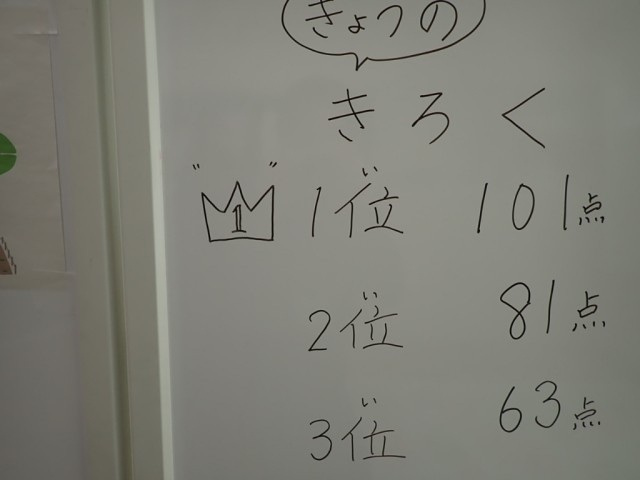 きょうの
きろく
1 1位 101点
2位 81点
3位 63点